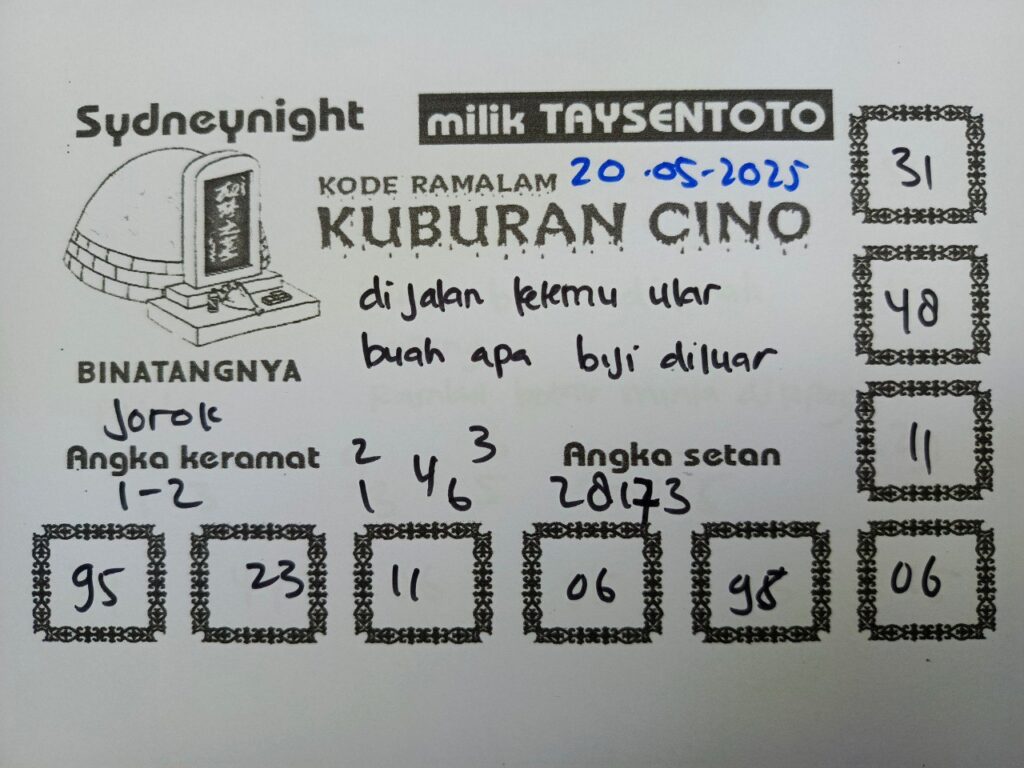 Sydneynight
milik TAYSENTOTO
KODE RAMALAM 20-05-2025
KUBURAN CINO
di jalan ketemu ular
buah apa biji diluar
BINATANGNYA
Jorok
Angka keramat
1-2
2 3
4
1 6
Angka setan
28173
31
48
11
95 23 11 06 98 06